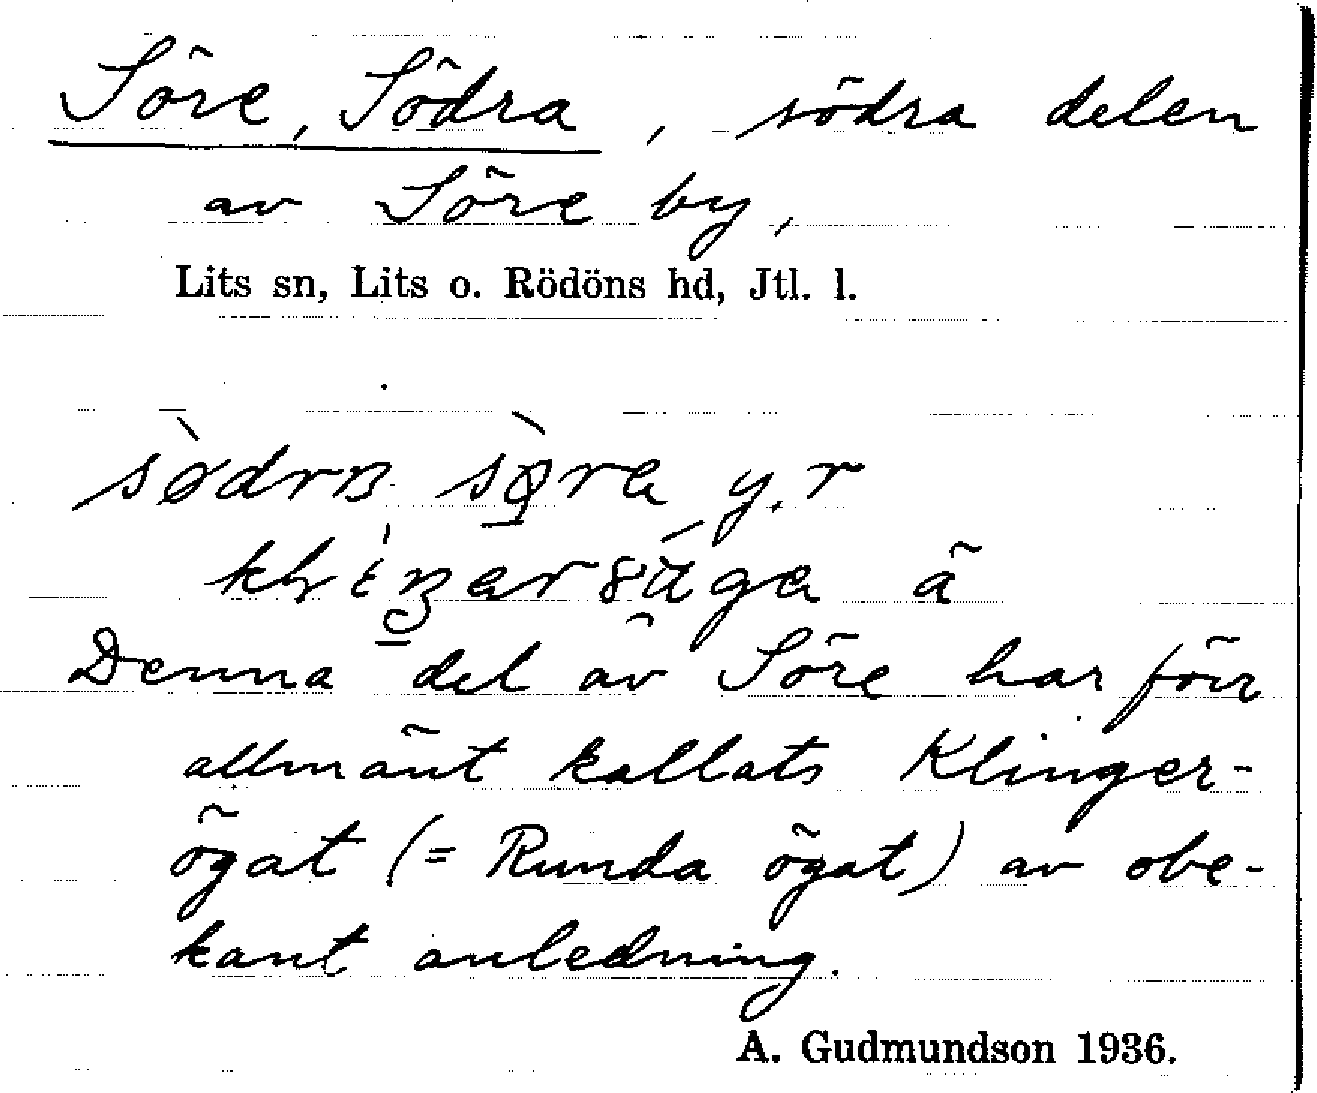 Söre, Södra, södra delen
av Söre by,
Lits sn, Lits o. Rödöns hd, Jtl. l.
y.r
å
Denna del av Söre har förr
allmänt kallats Klinger-
ögat (= Runda ögat) av obe-
kant anledning.
A. Gudmundson 1936.